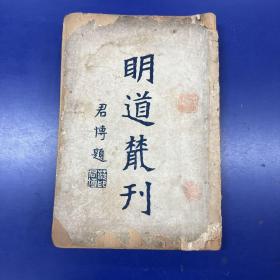 明道叢刊
君博題